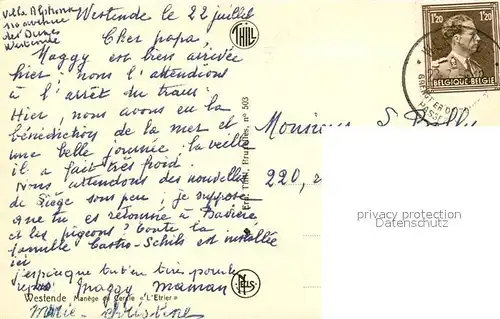 Villa Alphonse
110 avenue
des Dunes
Westende
Westende le 22 juillet
Cher papa,
Maggy est bien arrivée
hier ; nous l'attendions
à l'arrêt du tram.
Hier, nous avons eu la
bénédiction de la mer et
une belle journée. la veille
il a fait très froid.
Nous attendons des nouvelles
de Liège sous peu ; je suppose
que tu es retourné à
et les pigeons? Toute la
famille est installée
ici
j'espère que tu t'en tires pour le
repas Maggy Maman
Marie-Christine
Westende Manège du Cercle « L'Etrier »
THILL
Ern. Thill, Bruxelles, n° 503
NELS
1f20 1f20
BELGIQUE-BELGIË
Monsieur
220,
privacy protection
Datenschutz